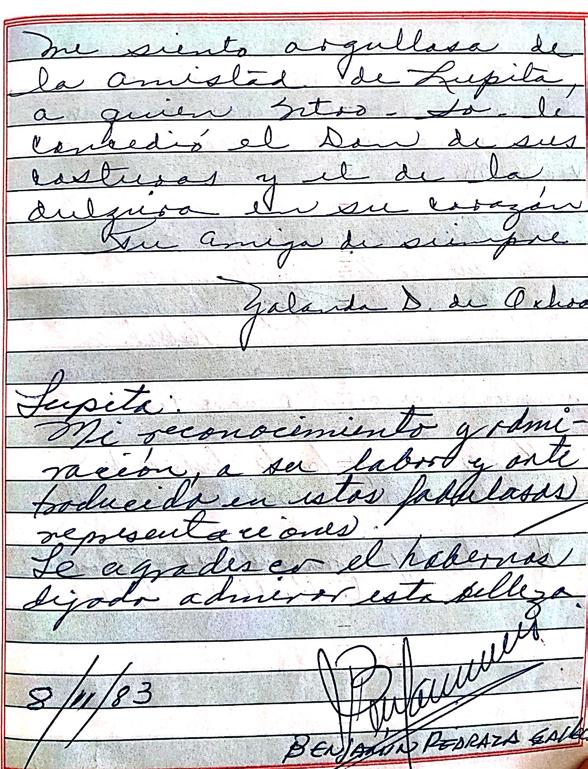 me siento orgullosa de
la amistad de Lupita,
a quien Ntro. Sr. le
concedió el Don de sus
costuras y el de la
dulzura en su corazón
Su amiga de siempre
Yolanda D. de Ochoa
Lupita:
Mi reconocimiento y admi-
ración, a su labor y arte
traducida en estas fabulosas
representaciones.
Le agradesco el habernos
dejado admirar esta belleza.
8/11/83
BENJAMIN PEDRAZA